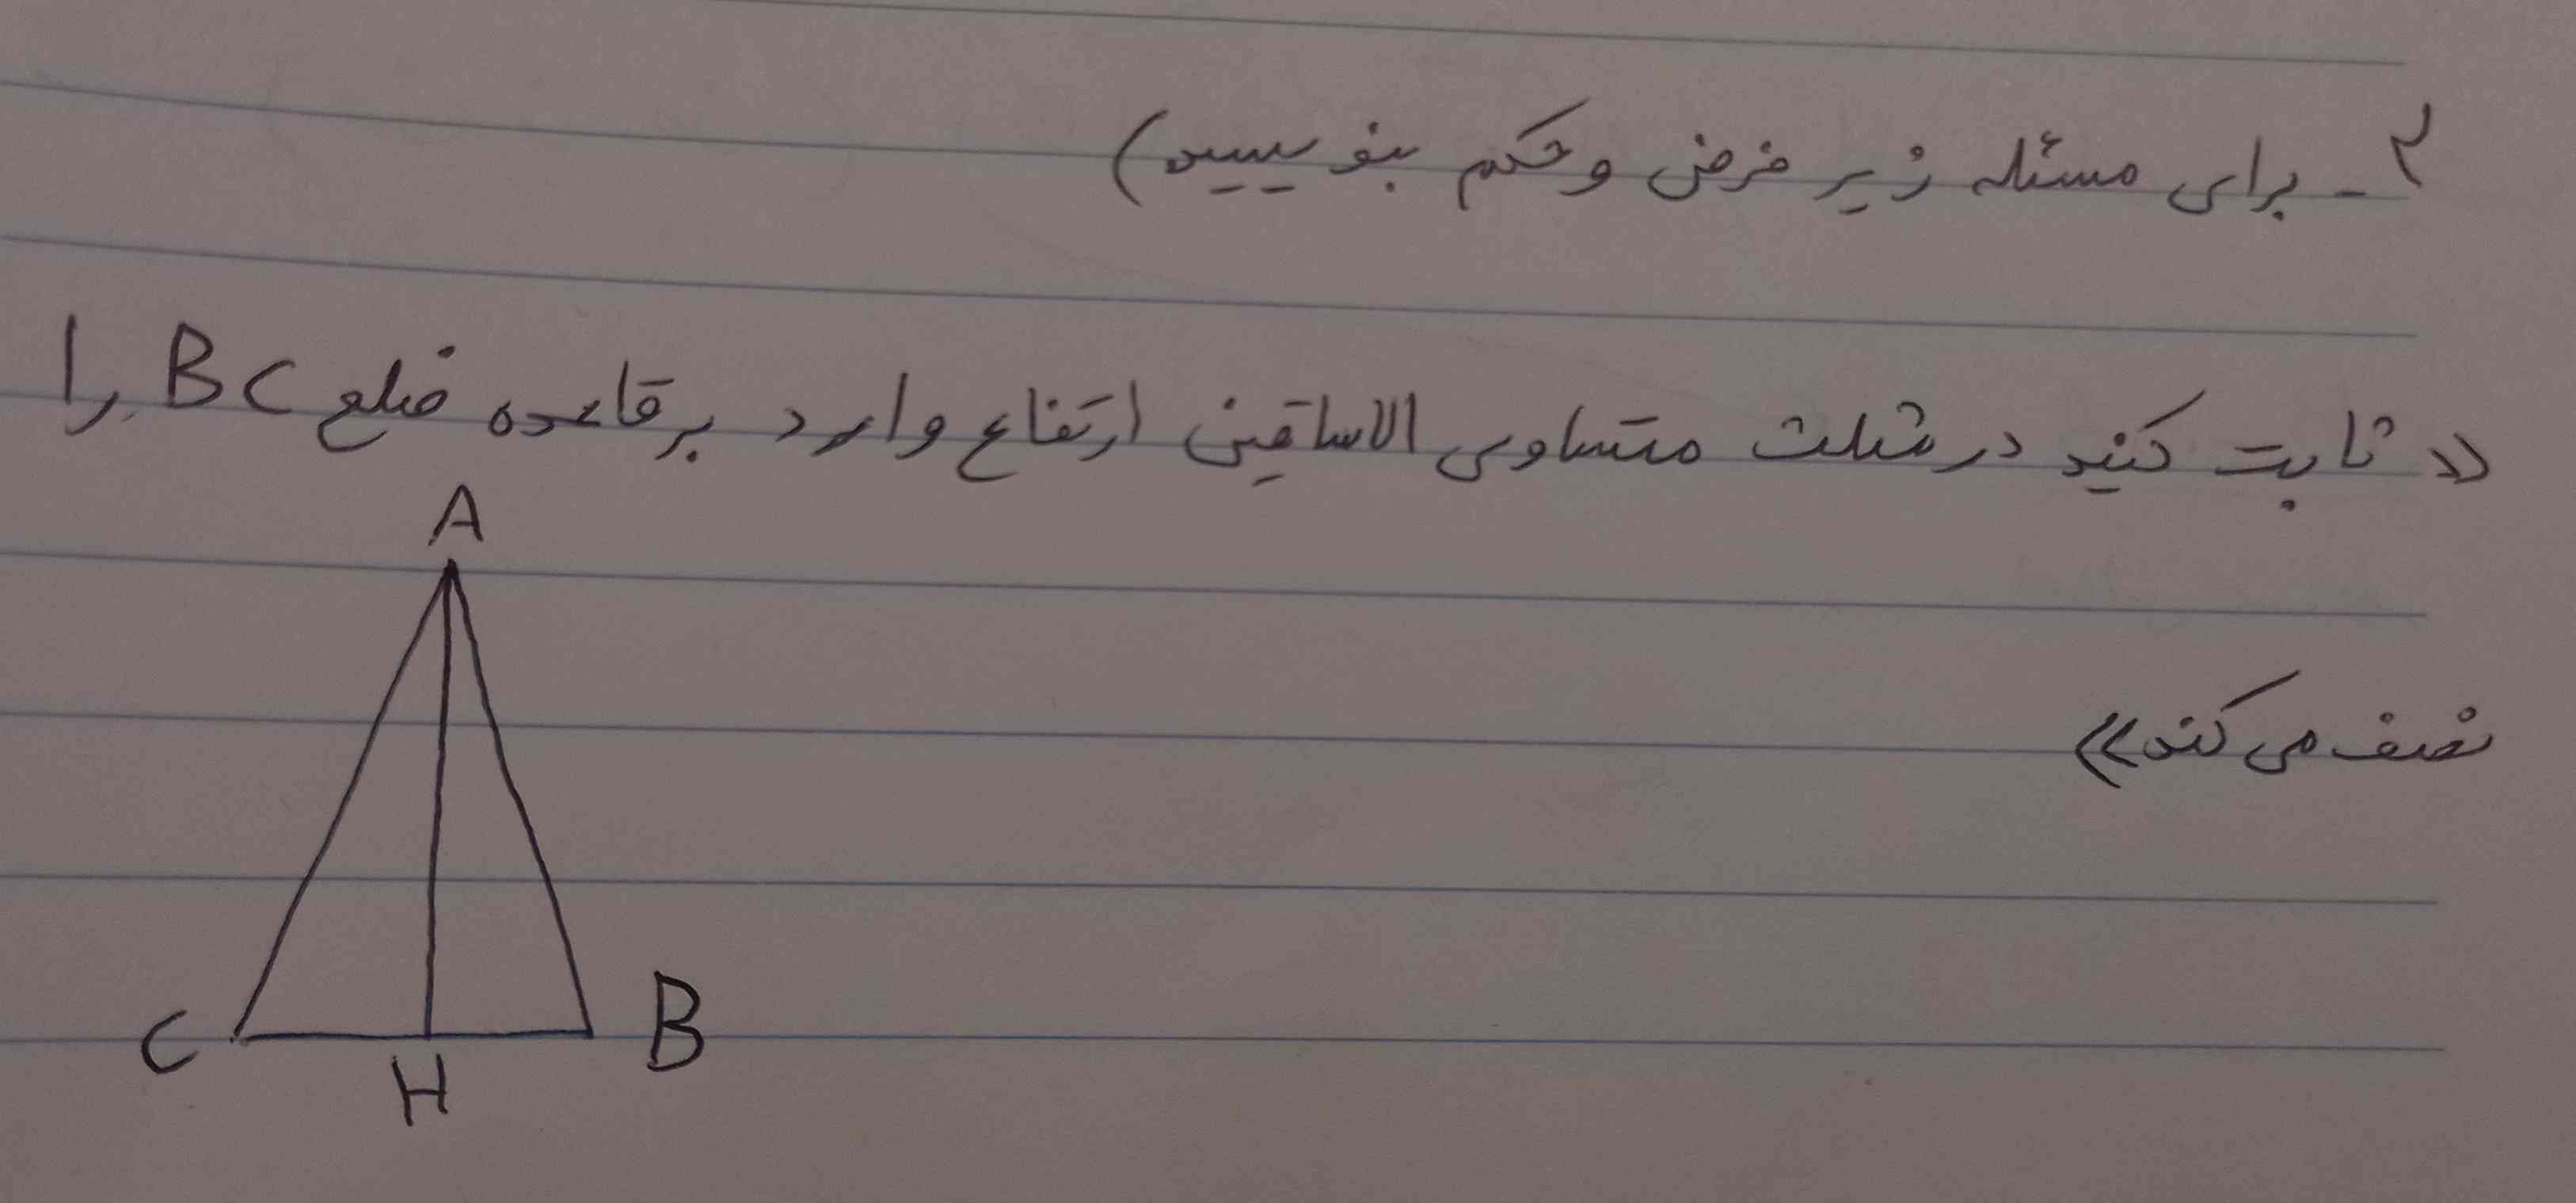 ۲ـ برای مسئله زیر فرض و حکم بنویسید)
«ثابت کنید در مثلث متساوی الاساقین ارتفاع وارد بر قاعده ضلع BC را
نصف می کند»
A
C B
H